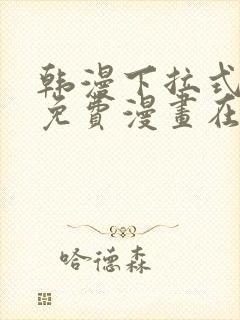 韩漫下拉式
免費漫畫在
哈德森